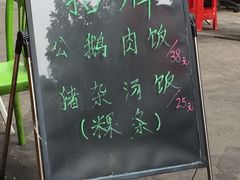 公鹅肉饭/38元
猪杂汤饭/25元
(粿条)